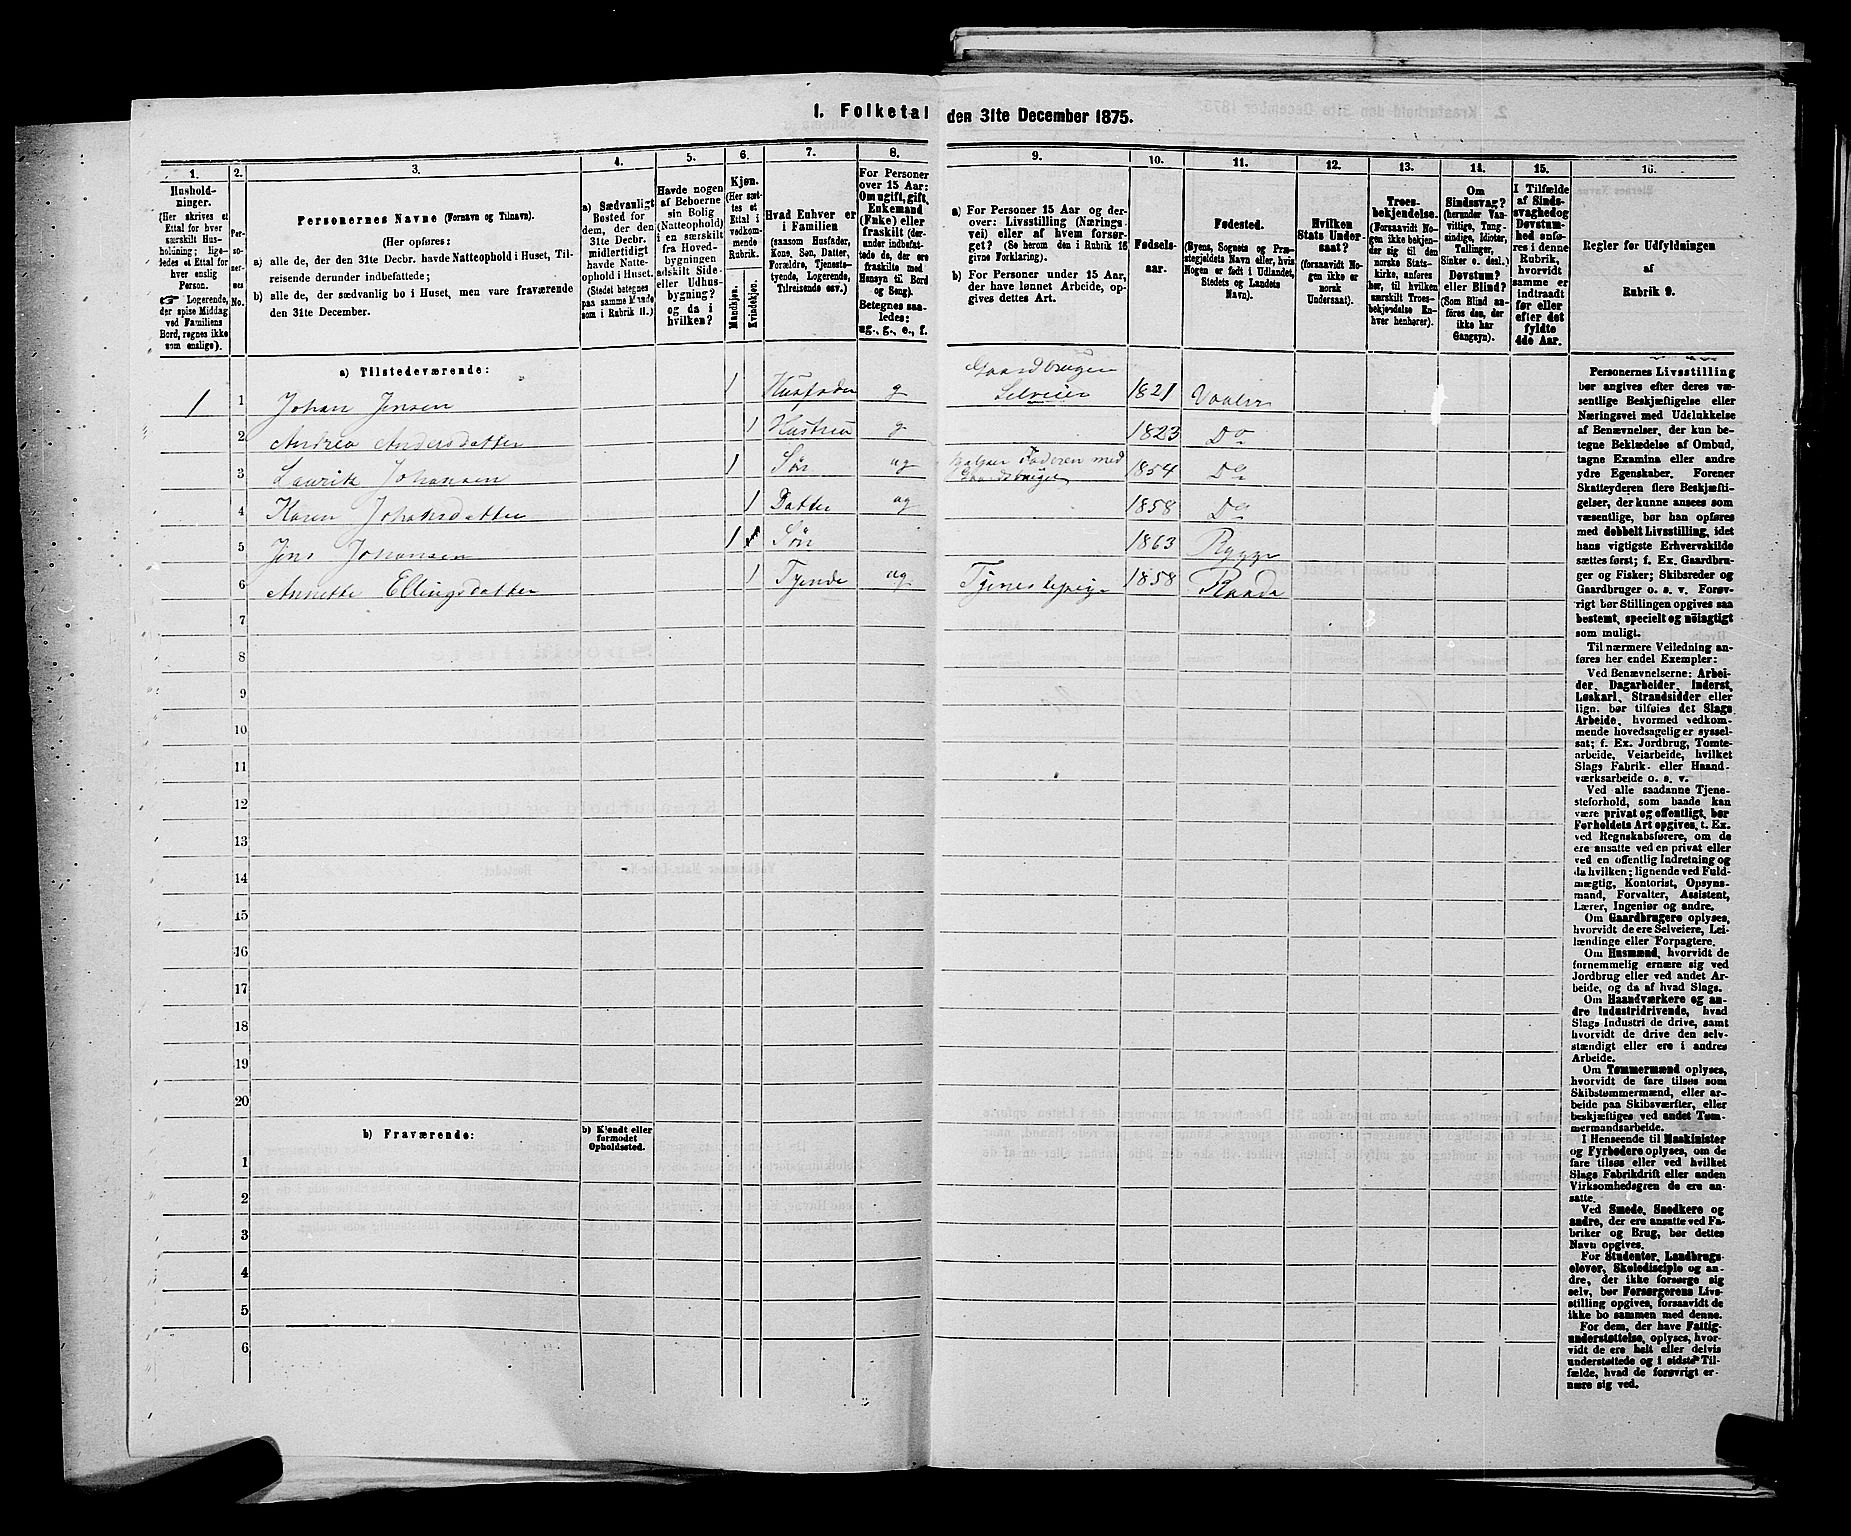 1. Folketal den 31te December 1875.
1.
Hushold-
ninger.
(Her skrives et
Ettal for hver
særskilt Hus-
holdning; lige-
ledes et Ettal for
hver enslig
Person.
☞ Logerende,
der spise Middag
ved Familiens
Bord, regnes ikke
som enslige).
2.
Per-
so-
ner-
nes
No.
3.
Personernes Navne (Fornavn og Tilnavn).
(Her opføres:
a) alle de, der den 31te Decbr. havde Natteophold i Huset, Til-
reisende derunder indbefattede;
b) alle de, der sædvanlig bo i Huset, men vare fraværende
den 31te December.
4.
a) Sædvanligt
Bosted for
dem, der den
31te Decbr.
midlertidigt
havde Natte-
ophold i Huset.
(Stedet betegnes
paa samme Maade
som i Rubrik 11.)
5.
Havde nogen
af Beboerne
sin Bolig
(Natteophold)
i en særskilt
fra Hoved-
bygningen
adskilt Side-
eller Udhus-
bygning?
og da i
hvilken?
6.
Kjøn.
(Her sæt-
tes et
Ettal i
vedkom-
mende
Rubrik.
Mandkjøn.
Kvindekjøn.
7.
Hvad Enhver er
i Familien
(saasom Husfader,
Kone, Søn, Datter,
Forældre, Tjeneste-
tyende, Logerende,
Tilreisende osv.)
8.
For Personer
over 15 Aar:
Om ugift, gift,
Enkemand
(Enke) eller
fraskilt (der-
under indbefat-
tede de, der ere
fraskilte med
Hensyn til Bord
og Seng).
Betegnes saa-
ledes:
ug., g., e., f.
9.
a) For Personer 15 Aar og der-
over: Livsstilling (Nærings-
vei) eller af hvem forsør-
get? (Se herom den i Rubrik 16
givne Forklaring).
b) For Personer under 15 Aar,
der have lønnet Arbeide, op-
gives dettes Art.
10.
Fødsels-
aar.
11.
Fødested.
(Byens, Sognets og Præ-
stegjeldets Navn eller, hvis
Nogen er født i Udlandet,
Stedets og Landets
Navn).
12.
Hvilken
Stats Under-
saat?
(forsaavidt No-
gen ikke er
norsk
Undersaat).
13.
Troes-
bekjendelse.
(Forsaavidt No-
gen ikke bekjen-
der sig til den
norske Stats-
kirke, anføres
her, til hvilken
særskilt Troes-
bekjendelse En-
hver henhører).
14.
Om
Sindssvag?
(herunder Van-
vittige, Tung-
sindige, Idioter,
Tullinger,
Sinker o. desl.)
Døvstum?
eller Blind?
(Som Blind an-
føres den, der
ikke har
Gangsyn).
15.
I Tilfælde
af Sinds-
svaghed og
Døvstum-
hed anfø-
res i denne
Rubrik,
hvorvidt
samme er
indtraadt
før eller
efter det
fyldte
4de Aar.
16.
Regler for Udfyldningen
af
Rubrik 9.
a) Tilstedeværende:
1 1 Johan Jensen 1 Husfader g Gaardbruger Selveier 1821 Vaaler
2 Andrea Andersdatter 1 Hustru g 1823 Do
3 Laurits Johansen 1 Søn ug Faderen med Gaardsbruget 1854 Do
4 Karen Johansdatter 1 Datter ug 1858 Do
5 Jens Johansen 1 Søn 1863 Rygge
6 Annette Ellingsdatter 1 Tyende ug Tjenestepige 1858 Raade
7
8
9
10
11
12
13
14
15
16
17
18
19
20
b) Fraværende:
b) Kjendt eller
formodet
Opholdssted.
1
2
3
4
5
6
Personernes Livsstilling
bør angives efter deres væ-
sentlige Beskjæftigelse eller
Næringsvei med Udelukkelse
af Benævnelser, der kun be-
tegne Beklædelse af Ombud,
tagne Examina eller andre
ydre Egenskaber. Forener
Skatteyderen flere Beskjæfti-
gelser, der kunne ansees som
væsentlige, bør han opføres
med dobbelt Livsstilling, idet
hans vigtigste Erhvervskilde
sættes først; f. Ex. Gaardbru-
ger og Fisker; Skibsreder og
Gaardbruger o. s. v. Forøv-
rigt bør Stillingen opgives saa
bestemt, specielt og nøiagtigt
som muligt.
Til nærmere Veiledning an-
føres her endel Exempler:
Ved Benævnelserne: Arbei-
der, Dagarbeider, Inderst,
Løskarl, Strandsidder eller
lign. bør tilføies det Slags
Arbeide, hvormed vedkom-
mende hovedsagelig er syssel-
sat; f. Ex. Jordbrug, Tomte-
arbeide, Veiarbeide, hvilket
Slags Fabrik- eller Haand-
værksarbeide o. s. v.
Ved alle saadanne Tjene-
steforhold, som baade kan
være privat og offentligt, bør
Forholdets Art opgives, t. Ex.
ved Regnskabsførere, om de
ere ansatte ved en privat eller
ved en offentlig Indretning og
da hvilken; lignende ved Fuld-
mægtig, Kontorist, Opsyns-
mand, Forvalter, Assistent,
Lærer, Ingeniør og andre.
Om Gaardbrugere oplyses,
hvorvidt de ere Selveiere, Lei-
lændinge eller Forpagtere.
Om Husmænd, hvorvidt de
fornemmelig ernære sig ved
Jordbrug eller ved andet Ar-
beide, og da af hvad Slags.
Om Haandværkere og an-
dre Industridrivende, hvad
Slags Industri de drive, samt
hvorvidt de drive den selv-
stændigt eller ere i andres
Arbeide.
Om Tømmermænd oplyses,
hvorvidt de fare tilsøs som
Skibstømmermænd, eller ar-
beide paa Skibsværfter, eller
beskjæftiges ved andet Tøm-
mermandsarbeide.
I Henseende til Maskinister
og Fyrbødere oplyses, om de
fare tilsøs eller ved hvilket
Slags Fabrikdrift eller anden
Virksomhedsgren de ere an-
satte.
Ved Smede, Snedkere og
andre, der ere ansatte ved Fa-
briker og Brug, bør dettes
Navn opgives.
For Studenter, Landbrugs-
elever, Skoledisciple og an-
dre, der ikke forsørge sig
selv, bør Forsørgerens Livs-
stilling opgives, forsaavidt de
ikke bo sammen med denne.
For dem, der have Fattig-
understøttelse, oplyses, hvor-
vidt de ere helt eller delvis
understøttede og i sidste Til-
fælde, hvad de forøvrigt er-
nære sig ved.